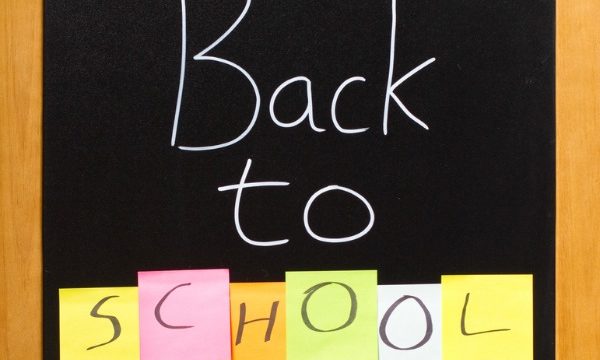 Back
to
SCHOOL